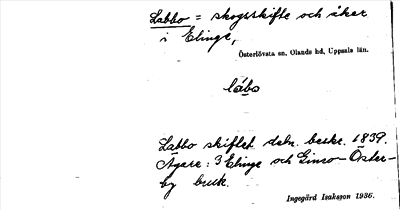 Labbo = skogsskifte och åker
i Elinge,
Österlövsta sn. Olands hd, Uppsala län.
låbo
Labbo skiftet. deln. beskr. 1839.
Ägare: 3 Elinge och Gimo-Öster-
by bruk.
Ingegärd Isaksson 1936.